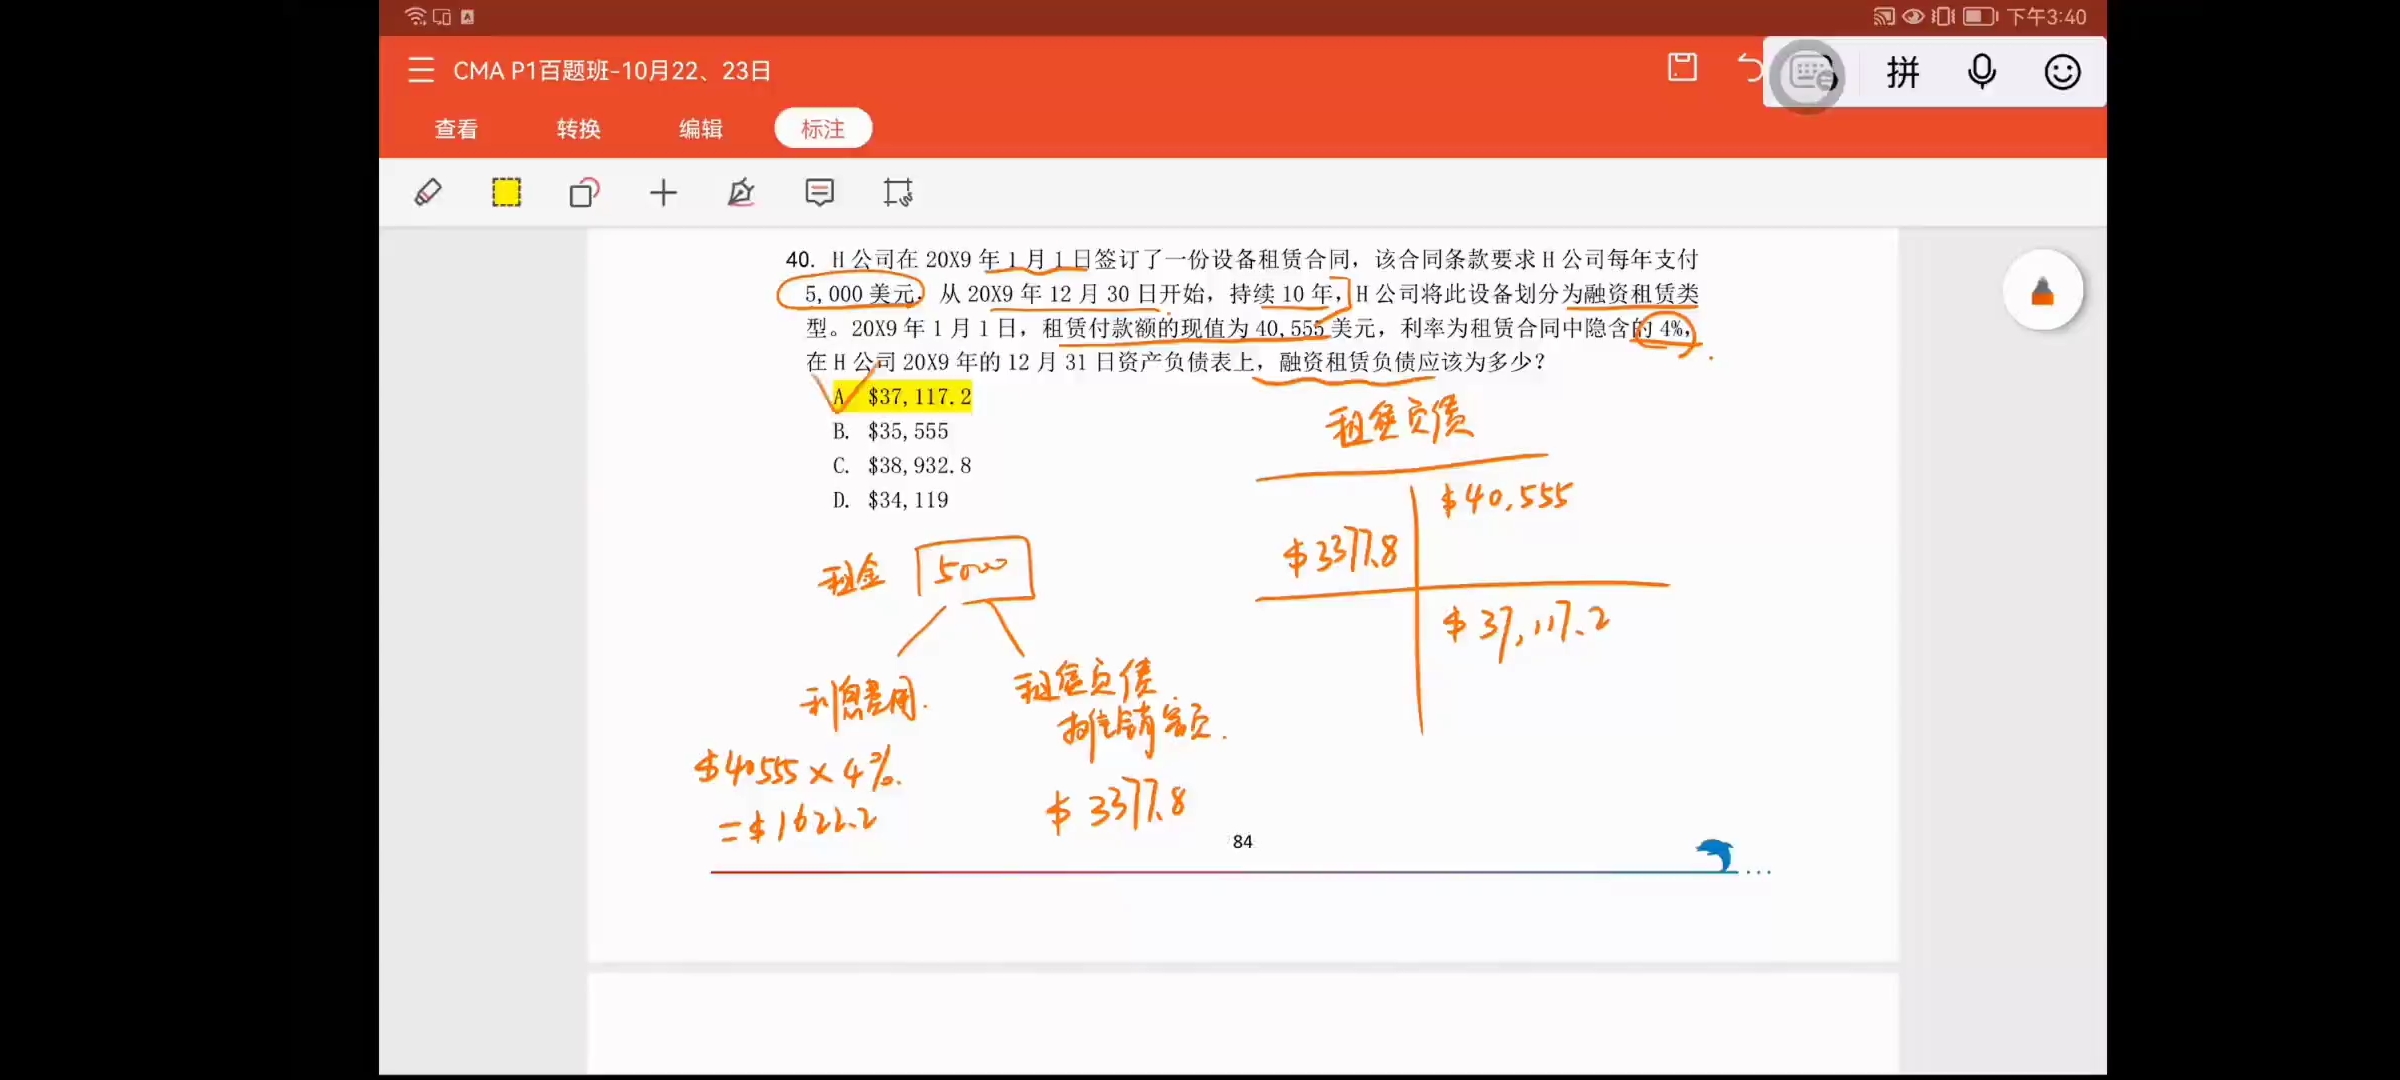 下午3:40
CMA P1百题班-10月22、23日
拼
查看 转换 编辑 标注
40. H 公司在 20X9 年 1 月 1 日签订了一份设备租赁合同，该合同条款要求 H 公司每年支付
5,000 美元，从 20X9 年 12 月 30 日开始，持续 10 年，H 公司将此设备划分为融资租赁类
型。20X9 年 1 月 1 日，租赁付款额的现值为 40,555 美元，利率为租赁合同中隐含的 4%，
在 H 公司 20X9 年的 12 月 31 日资产负债表上，融资租赁负债应该为多少？
A $37,117.2
B. $35,555
C. $38,932.8
D. $34,119
租赁负债
$40,555
$3377.8
$37,117.2
租金 5000
利息费用.
租赁负债
摊销额.
$40555×4%.
=$1622.2
$3377.8
84